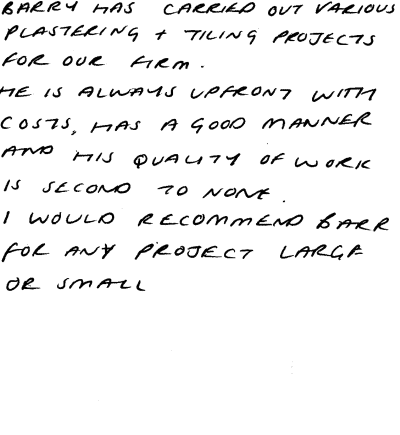 BARRY HAS CARRIED OUT VARIOUS
PLASTERING + TILING PROJECTS
FOR OUR FIRM.
HE IS ALWAYS UPFRONT WITH
COSTS, HAS A GOOD MANNER
AND HIS QUALITY OF WORK
IS SECOND TO NONE.
I WOULD RECOMMEND BARR
FOR ANY PROJECT LARGE
OR SMALL